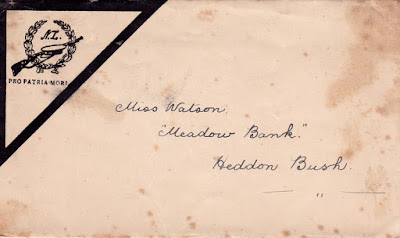 N.Z.
PRO PATRIA MORI
Miss Watson.
"Meadow Bank."
Heddon Bush.
"